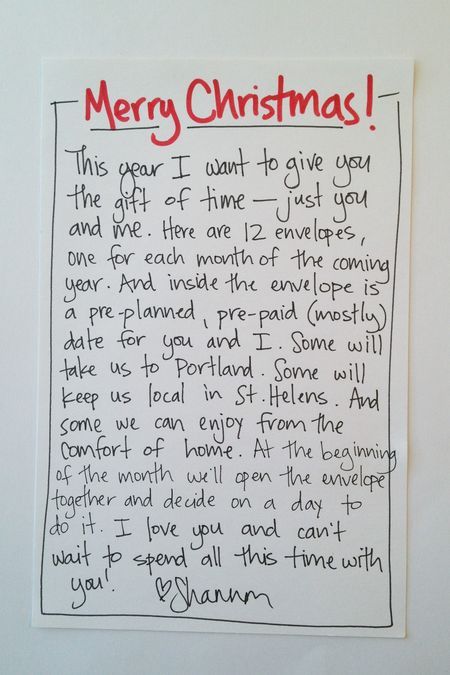 Merry Christmas!
This year I want to give you
the gift of time — just you
and me. Here are 12 envelopes,
one for each month of the coming
year. And inside the envelope is
a pre-planned, pre-paid (mostly)
date for you and I. Some will
take us to Portland. Some will
keep us local in St. Helens. And
some we can enjoy from the
comfort of home. At the beginning
of the month we'll open the envelope
together and decide on a day to
do it. I love you and can't
wait to spend all this time with
you! ♡Shannon